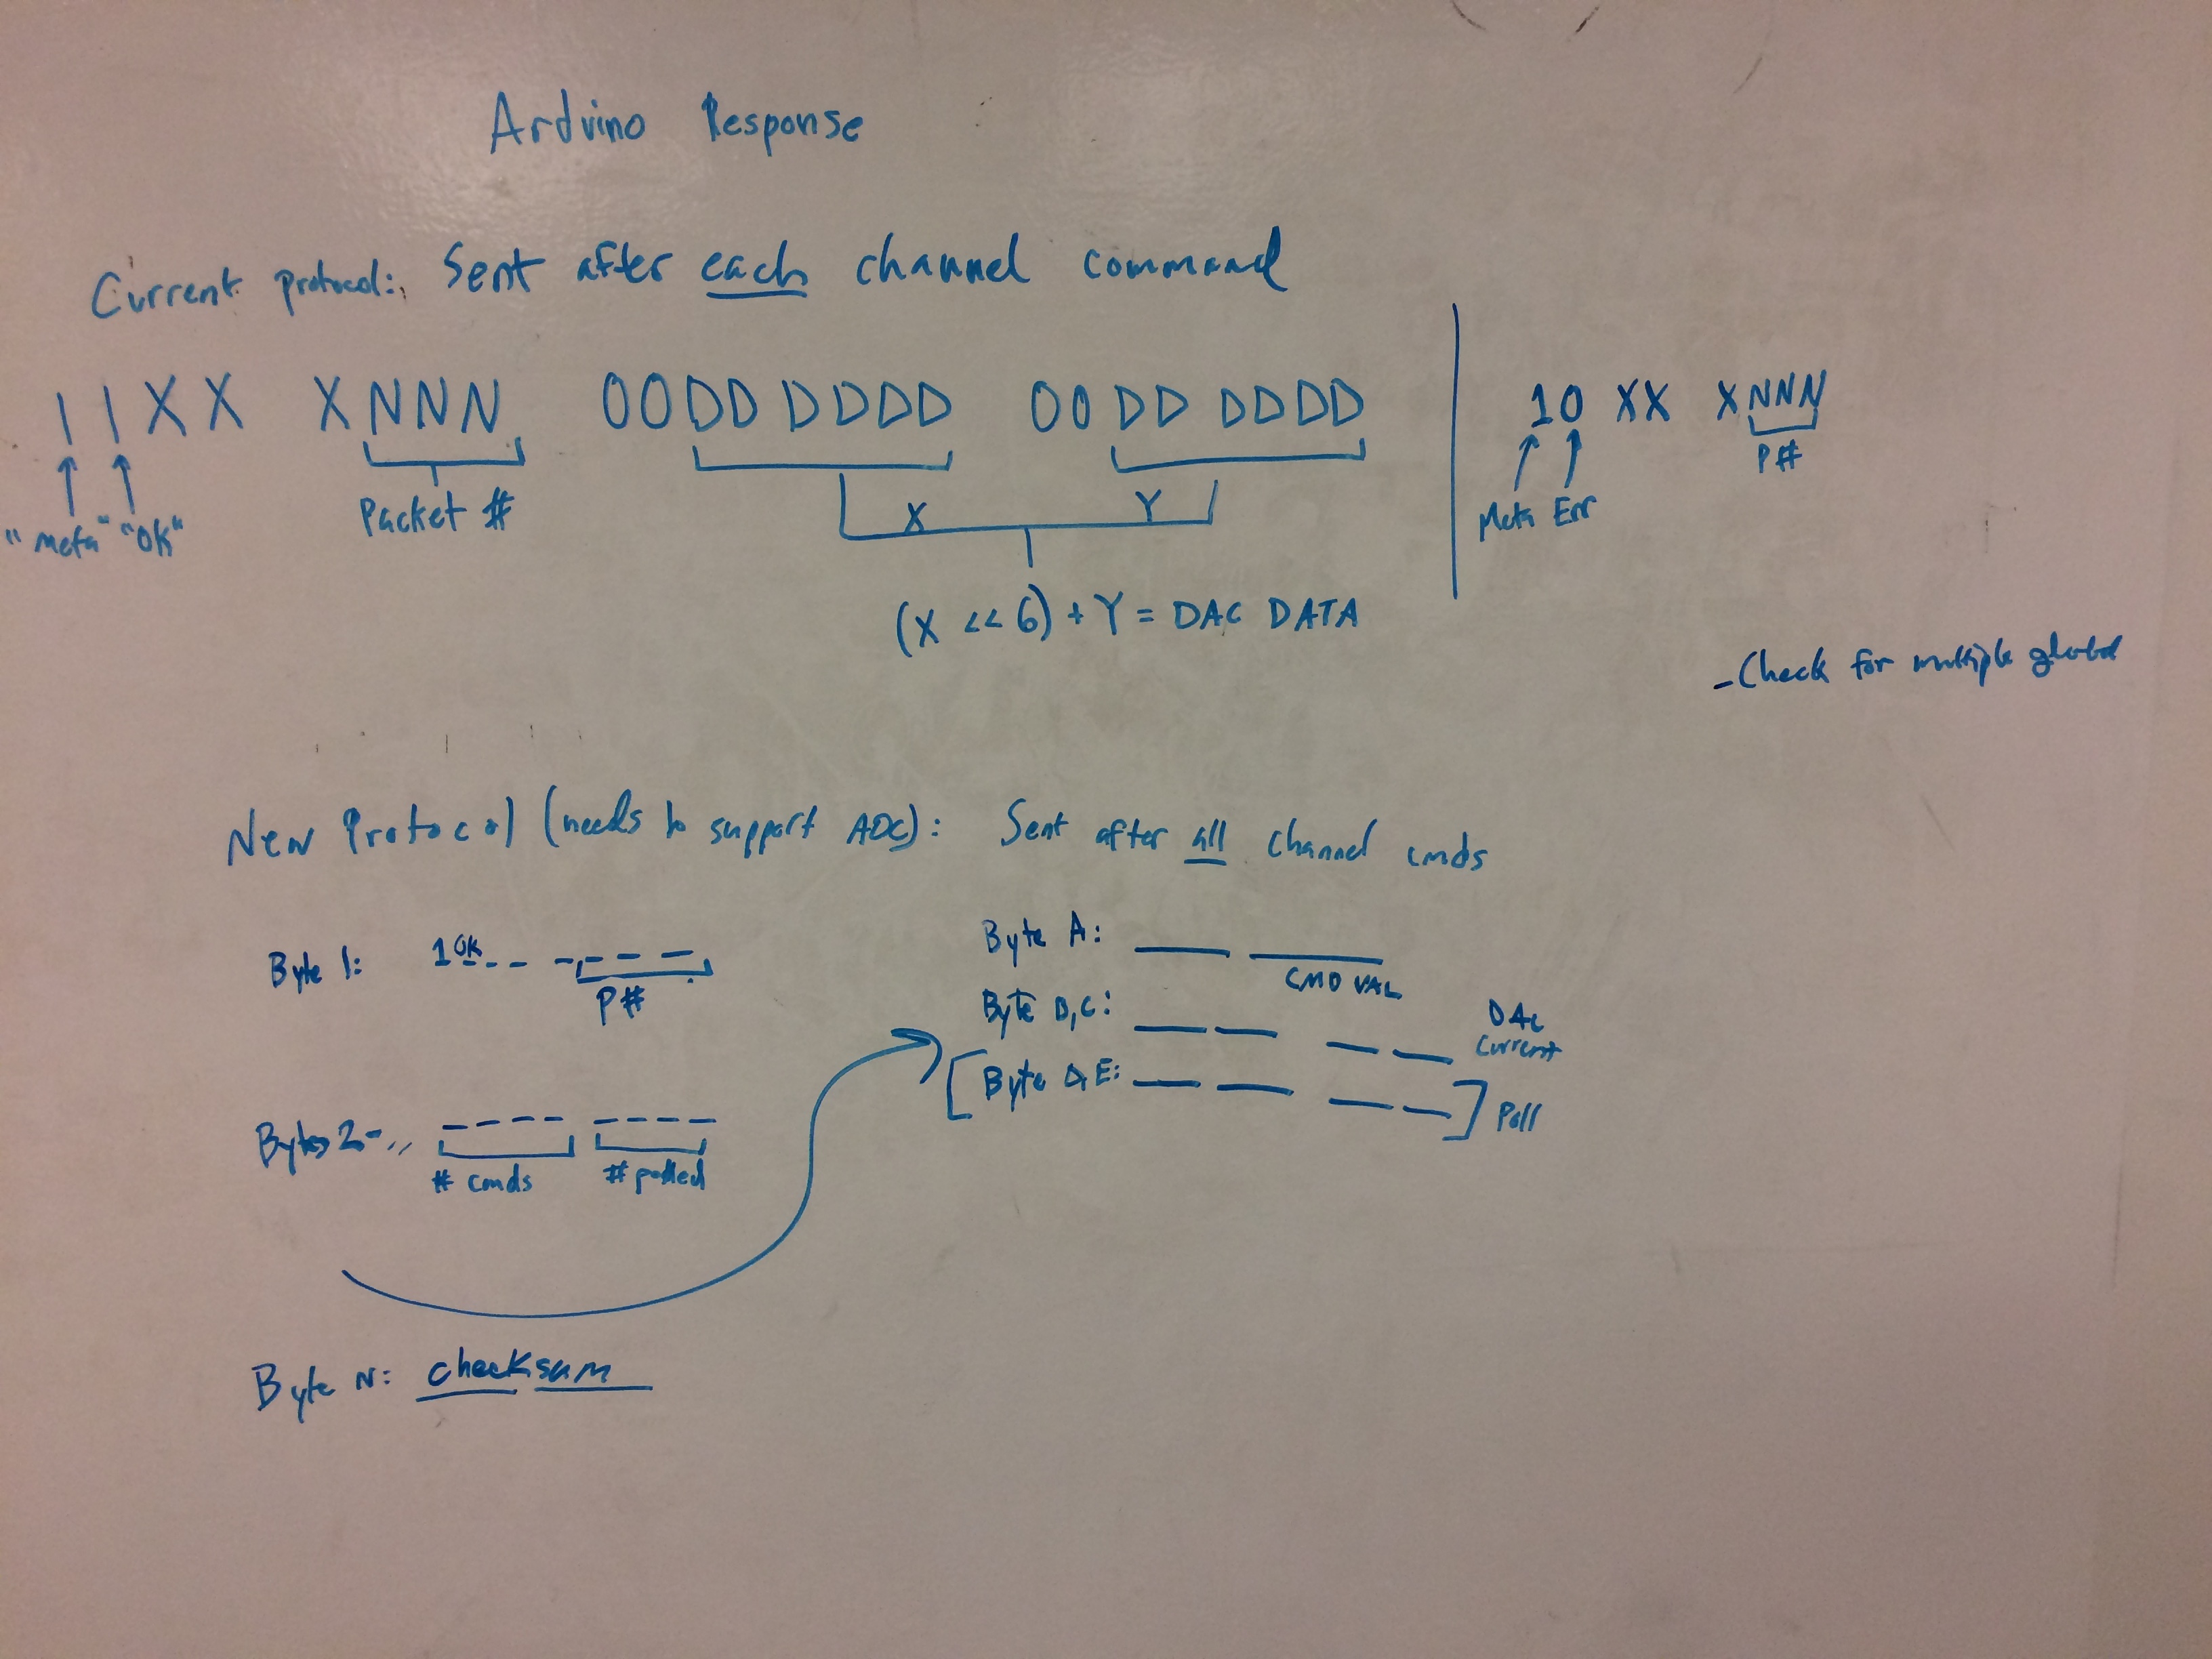 Arduino Response
Current protocol: Sent after each channel command
11XX XNNN 00DD DDDD 00DD DDDD
"meta" "OK" Packet # X Y
(X << 6) + Y = DAC DATA
10 XX XNNN
P#
Meta Err
- Check for multiple global
New Protocol (needs to support ADC): Sent after all channel cmds
Byte 1: 1 OK
P#
Bytes 2-..
# cmds # polled
Byte N: checksum
Byte A:
CMD VAL
Byte B,C: DAC
Current
[Byte D,E: ] Poll